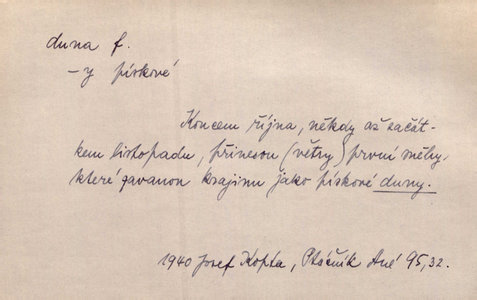 duna f.
-y pískové
Koncem října, někdy až začát-
kem listopadu, přinesou (větry) první sněhy,
které zavanou krajinu jako pískové duny.
1940 Josef Kopta, Ptáčník 95, 32.